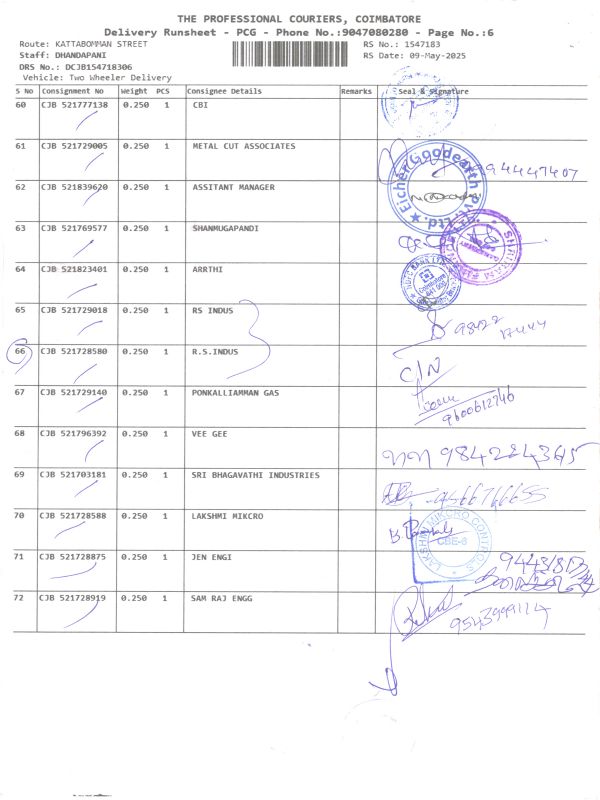 THE PROFESSIONAL COURIERS, COIMBATORE
Delivery Runsheet - PCG - Phone No.:9047080280 - Page No.:6
Route: KATTABOMMAN STREET
RS No.: 1547183
Staff: DHANDAPANI
RS Date: 09-May-2025
DRS No.: DCJB154718306
Vehicle: Two Wheeler Delivery
S No Consignment No Weight PCS Consignee Details Remarks Seal & Signature
60 CJB 521777138 0.250 1 CBI
61 CJB 521729005 0.250 1 METAL CUT ASSOCIATES
62 CJB 521839620 0.250 1 ASSITANT MANAGER
Eicher Goodearth Pvt. Ltd.
63 CJB 521769577 0.250 1 SHANMUGAPANDI
64 CJB 521823401 0.250 1 ARRTHI
65 CJB 521729018 0.250 1 RS INDUS
66 CJB 521728580 0.250 1 R.S.INDUS
C/N
67 CJB 521729140 0.250 1 PONKALLIAMMAN GAS
9600612746
68 CJB 521796392 0.250 1 VEE GEE
69 CJB 521703181 0.250 1 SRI BHAGAVATHI INDUSTRIES
70 CJB 521728588 0.250 1 LAKSHMI MIKCRO
LAKSHMI MIKCRO CONTROLS
CBE-6
71 CJB 521728875 0.250 1 JEN ENGI
72 CJB 521728919 0.250 1 SAM RAJ ENGG
9543999114